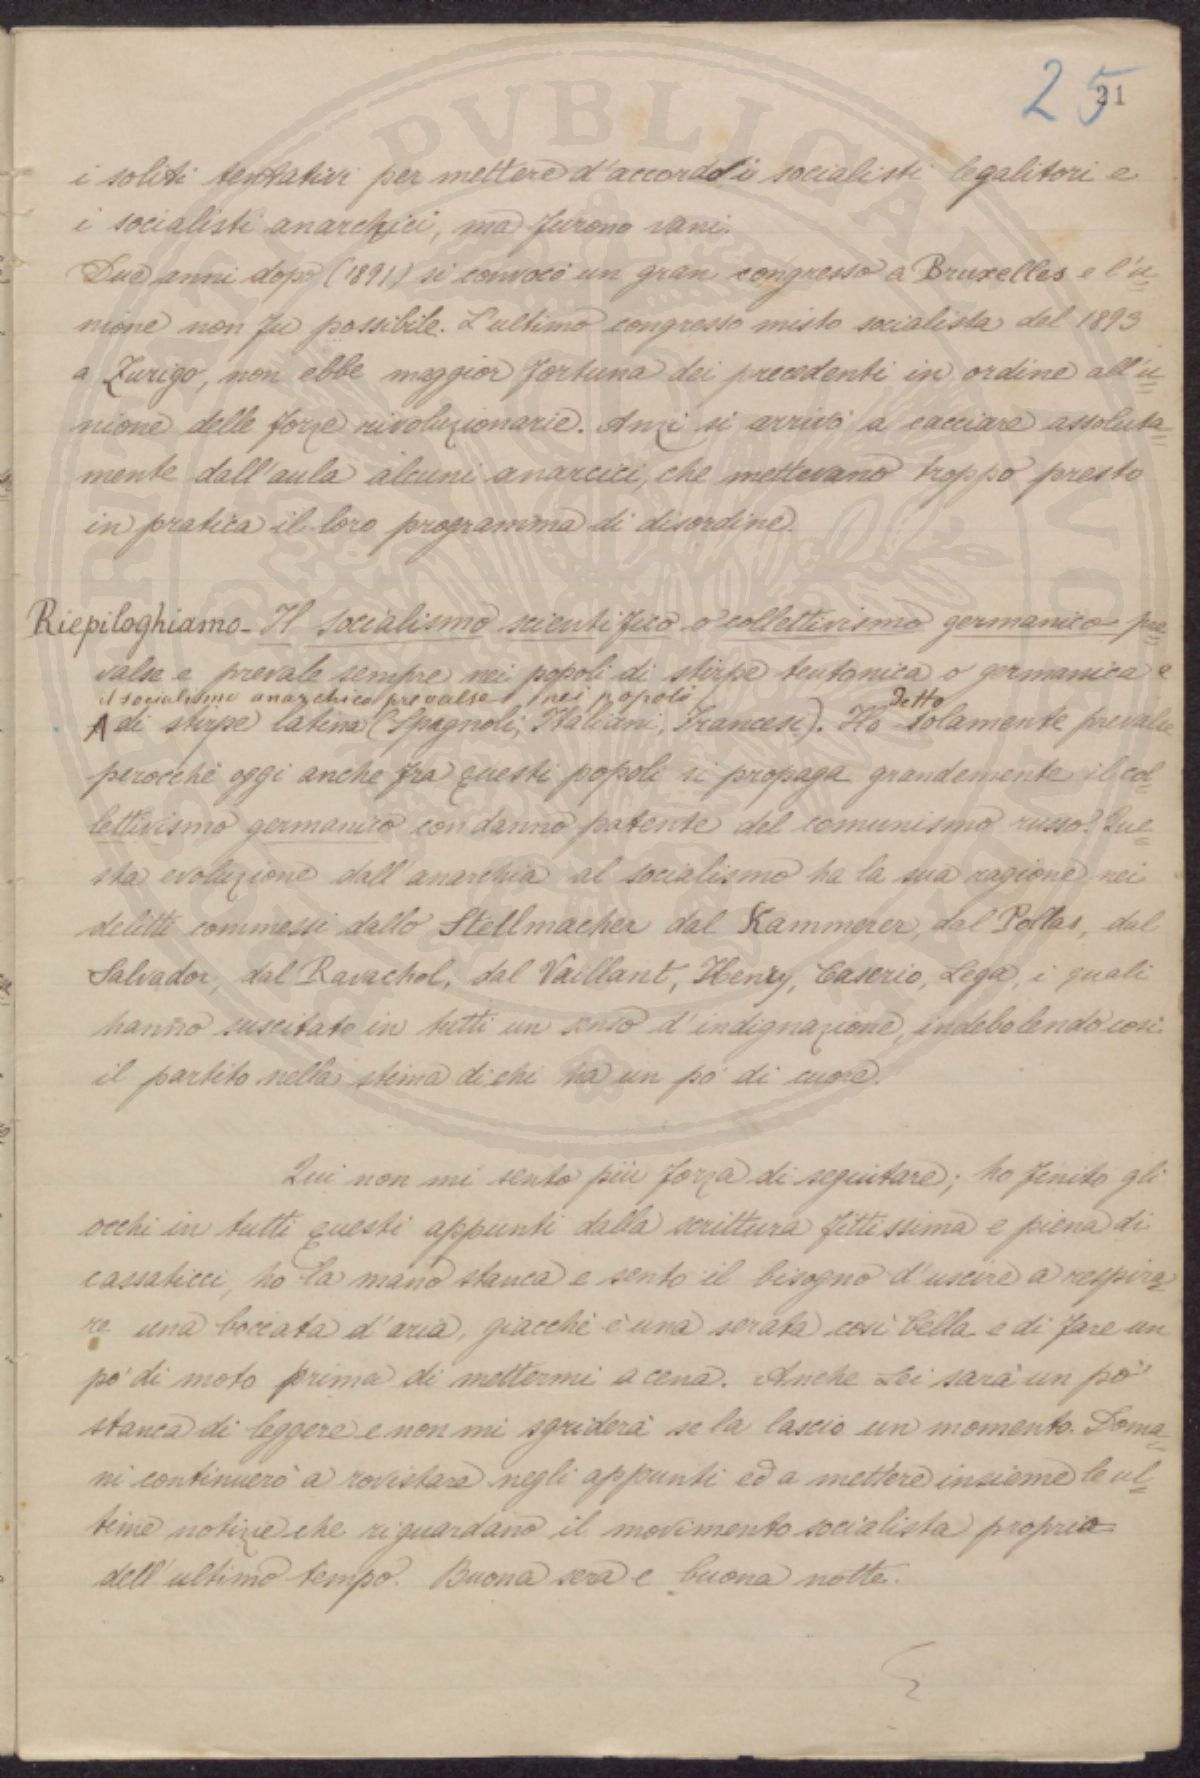 25
21
i soliti tentativi per mettere d'accordo i socialisti legalitori e
i socialisti anarchici, ma furono vani.
Due anni dopo (1891) si convocò un gran congresso a Bruxelles e l'u=
nione non fu possibile. L'ultimo congresso misto socialista del 1893
a Zurigo, non ebbe maggior fortuna dei precedenti in ordine all'u=
nione delle forze rivoluzionarie. Anzi si arrivò a cacciare assoluta=
mente dall'aula alcuni anarcici, che mettevano troppo presto
in pratica il loro programma di disordine.
Riepiloghiamo - Il socialismo scientifico o collettivismo germanico pre=
valse e prevale sempre nei popoli di stirpe teutonica o germanica e
il socialismo anarchico prevalse nei popoli
di stirpe latina (Spagnoli, Italiani, Francesi). Ho detto solamente prevalse
perocchè oggi anche fra questi popoli si propaga grandemente il col=
lettivismo germanico con danno patente del comunismo russo. Que=
sta evoluzione dall'anarchia al socialismo ha la sua ragione nei
delitti commessi dallo Stellmacher dal Kammerer, dal Pallas, dal
Salvador, dal Ravachol, dal Vaillant, Henry, Caserio, Lega, i quali
hanno suscitato in tutti un senso d'indignazione, indebolendo così
il partito nella stima di chi ha un pò di cuore.
Qui non mi sento più forza di seguitare; ho finito gli
occhi in tutti questi appunti dalla scrittura fittissima e piena di
cassaticci, ho la mano stanca e sento il bisogno d'uscire a respira=
re una boccata d'aria, giacchè è una serata così bella e di fare un
pò di moto prima di mettermi a cena. Anche Lei sarà un pò
stanca di leggere e non mi sgriderà se la lascio un momento. Doma=
ni continuerò a rovistare negli appunti ed a mettere insieme le ul=
time notizie che riguardano il movimento socialista proprio
dell'ultimo tempo. Buona sera e buona notte.